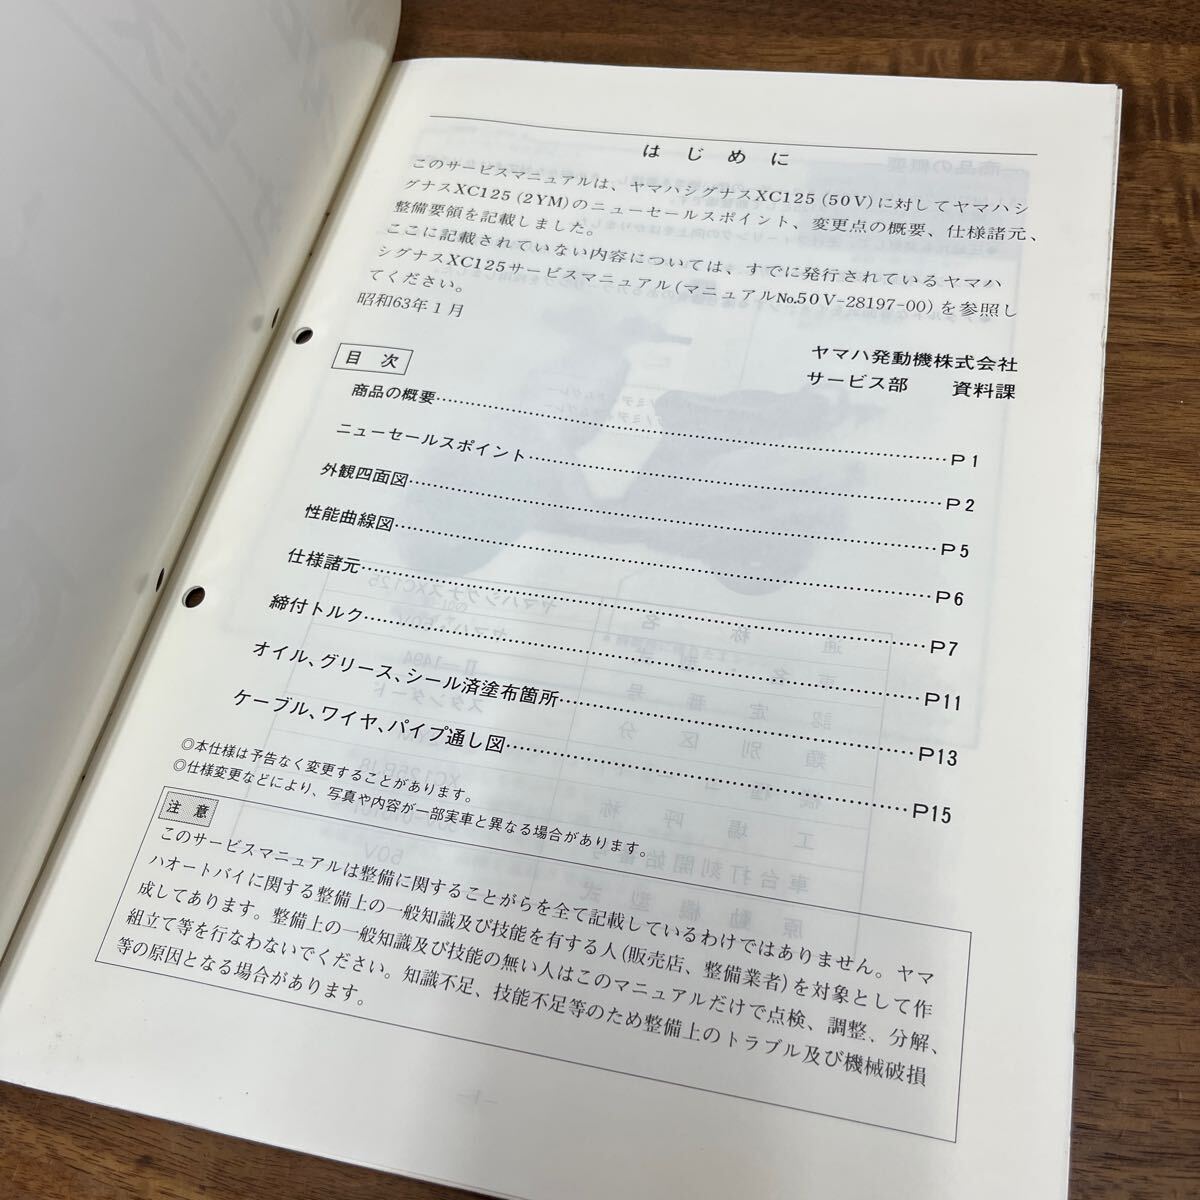 はじめに
このサービスマニュアルは、ヤマハシグナスXC125(50V)に対してヤマハシ
グナスXC125(2YM)のニューセールスポイント、変更点の概要、仕様諸元、
整備要領を記載しました。
ここに記載されていない内容については、すでに発行されているヤマハ
シグナスXC125サービスマニュアル(マニュアル№50V-28197-00)を参照し
てください。
昭和63年1月
ヤマハ発動機株式会社
サービス部 資料課
目次
商品の概要……P1
ニューセールスポイント……P2
外観四面図……P5
性能曲線図……P6
仕様諸元……P7
締付トルク……P11
オイル、グリース、シール済塗布箇所……P13
ケーブル、ワイヤ、パイプ通し図……P15
◎本仕様は予告なく変更することがあります。
◎仕様変更などにより、写真や内容が一部実車と異なる場合があります。
注意
このサービスマニュアルは整備に関することがらを全て記載しているわけではありません。ヤマ
ハオートバイに関する整備上の一般知識及び技能を有する人(販売店、整備業者)を対象として作
成してあります。整備上の一般知識及び技能の無い人はこのマニュアルだけで点検、調整、分解、
組立て等を行なわないでください。知識不足、技能不足等のため整備上のトラブル及び機械破損
等の原因となる場合があります。